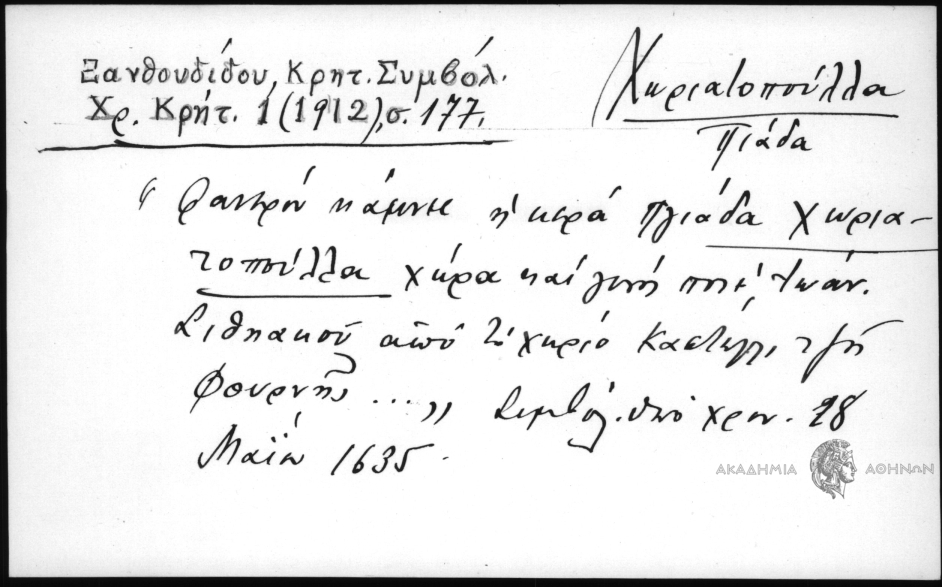 Ξανθουδίδου, Κρητ. Συμβόλ.
Χρ. Κρήτ. 1 (1912), σ. 177.
Χωριατοπούλλα
Πιάδα
"Φανερόν κάμνει ἡ κερά Πγιάδα χωρια-
τοπούλλα χήρα καί γυνή ποτέ, Ἰωάν.
Σιθιακοῦ ἀπό τό χωριό Καστέλλι τζῆ
Φουρνῆς ...„ Συμβόλ. ὑπό χρον. 28
Μαΐου 1635.
ΑΚΑΔΗΜΙΑ ΑΘΗΝΩΝ